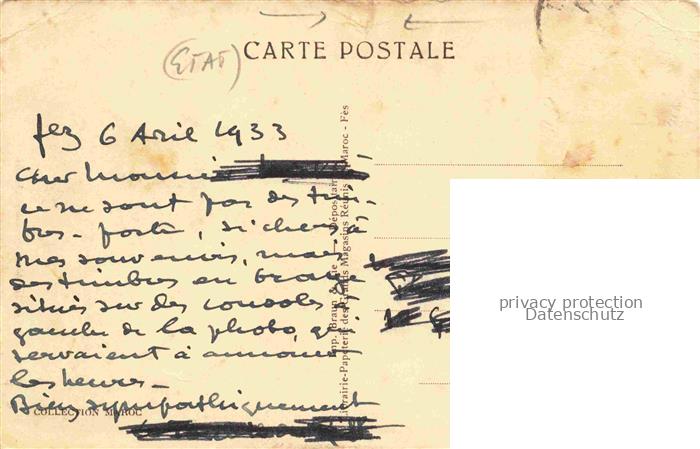 CARTE POSTALE
(ETAT)
fez 6 Avril 1933
Cher Monsieur
ce ne sont pas des tim-
bres-poste, si chers à
mes souvenirs, mais
des timbres en bronze
situés sur des consoles à
gauche de la photo, qui
servaient à annoncer
les heures-
Bien sympathiquement
COLLECTION MAROC
Imp. Braun & Cie — Dépositaire Maroc - Fès
Librairie-Papeterie des Grands Magasins Réunis
privacy protection
Datenschutz